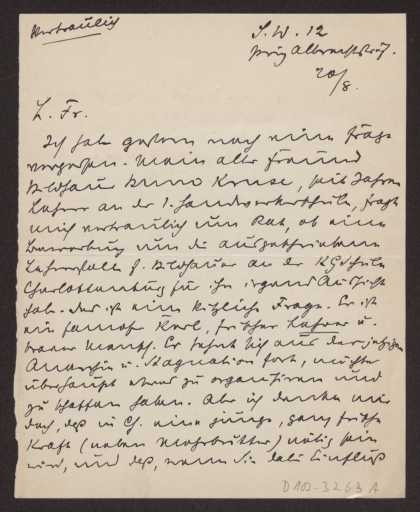 Vertraulich
S.W. 12
Prinz Albrechtstraß.
20/8.
L. Fr.
Ich habe gestern noch eine Frage
vergessen. Mein alter Freund
Bildhauer Bruno Kruse, seit Jahren
Lehrer an der 1. Handwerkerschule, fragt
mich vertraulich um Rat, ob eine
Bewerbung um die ausgeschriebene
Lehrerstelle f. Bildhauer an der KGschule
Charlottenburg für ihn irgend Aussicht
habe. Das ist eine kitzliche Frage. Er ist
ein famoser Kerl, frischer Lehrer u.
braver Mensch. Er sehnt sich aus der jetzigen
Anarchie u. Stagnation fort, möchte
überhaupt etwas zu organisieren und
zu schaffen haben. Aber ich denke mir
doch, daß in Ch. eine junge, ganz frische
Kraft (neben Mohrbutter) nötig sein
wird, und daß, wenn Sie dabei Einfluß
D 102-3263 A